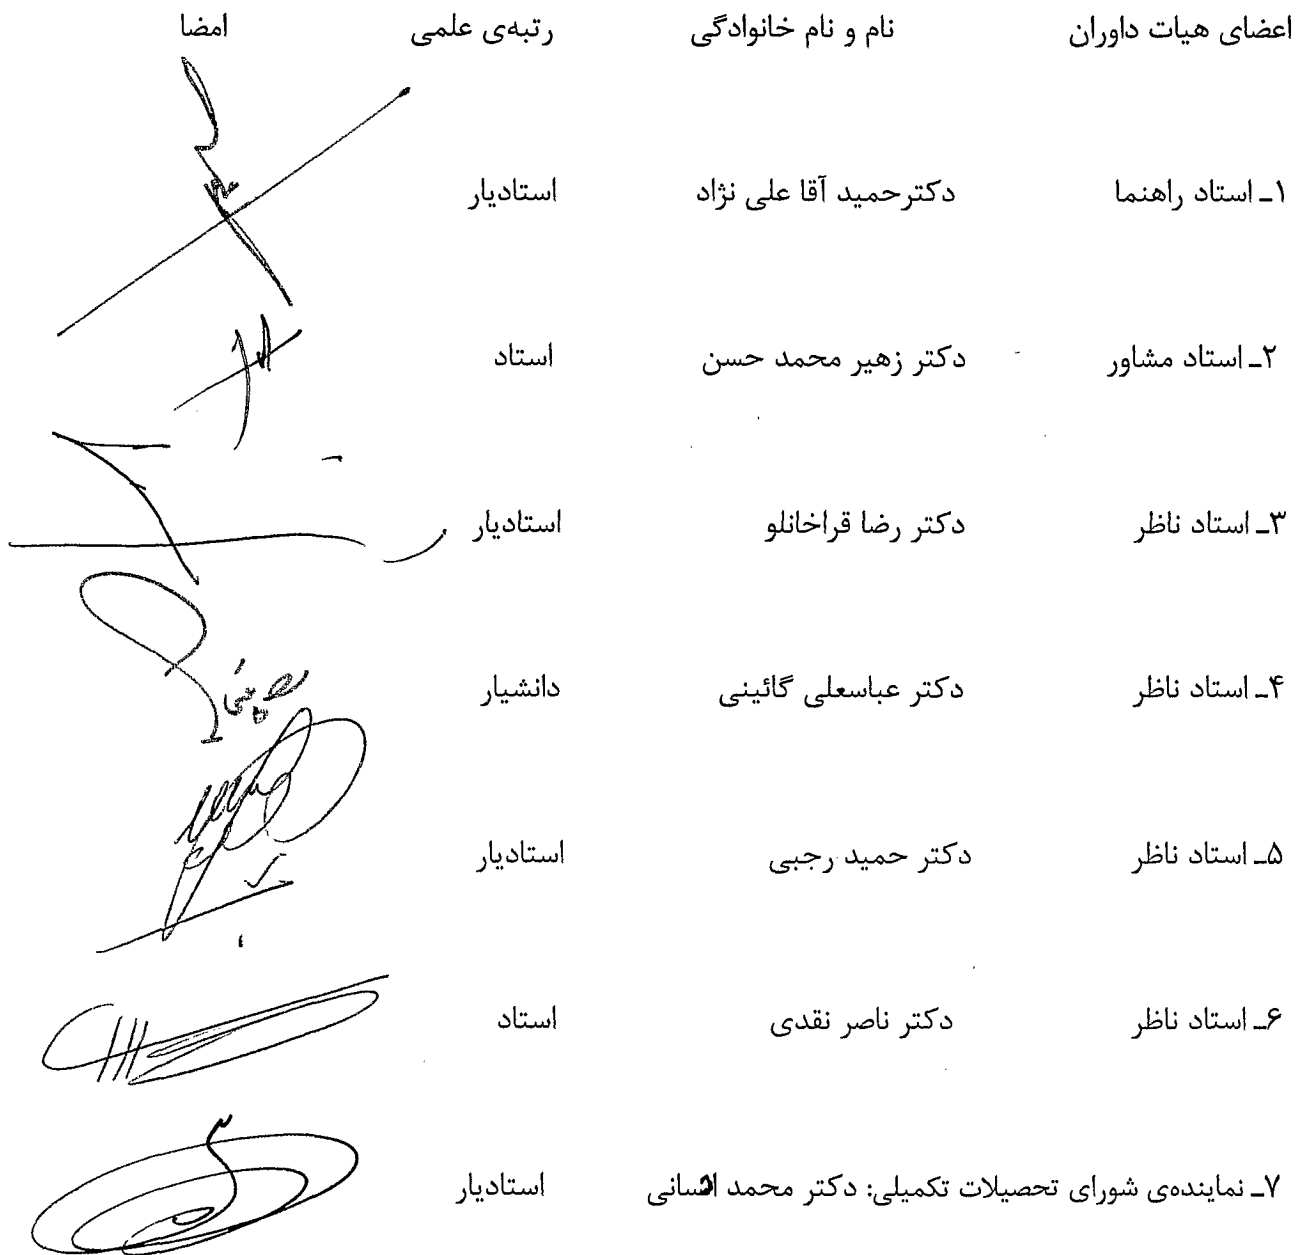 اعضای هیات داوران نام و نام خانوادگی رتبه‌ی علمی امضا
۱ـ استاد راهنما دکترحمید آقا علی نژاد استادیار
۲ـ استاد مشاور دکتر زهیر محمد حسن استاد
۳ـ استاد ناظر دکتر رضا قراخانلو استادیار
۴ـ استاد ناظر دکتر عباسعلی گائینی دانشیار
۵ـ استاد ناظر دکتر حمید رجبی استادیار
۶ـ استاد ناظر دکتر ناصر نقدی استاد
۷ـ نماینده‌ی شورای تحصیلات تکمیلی: دکتر محمد استادیار